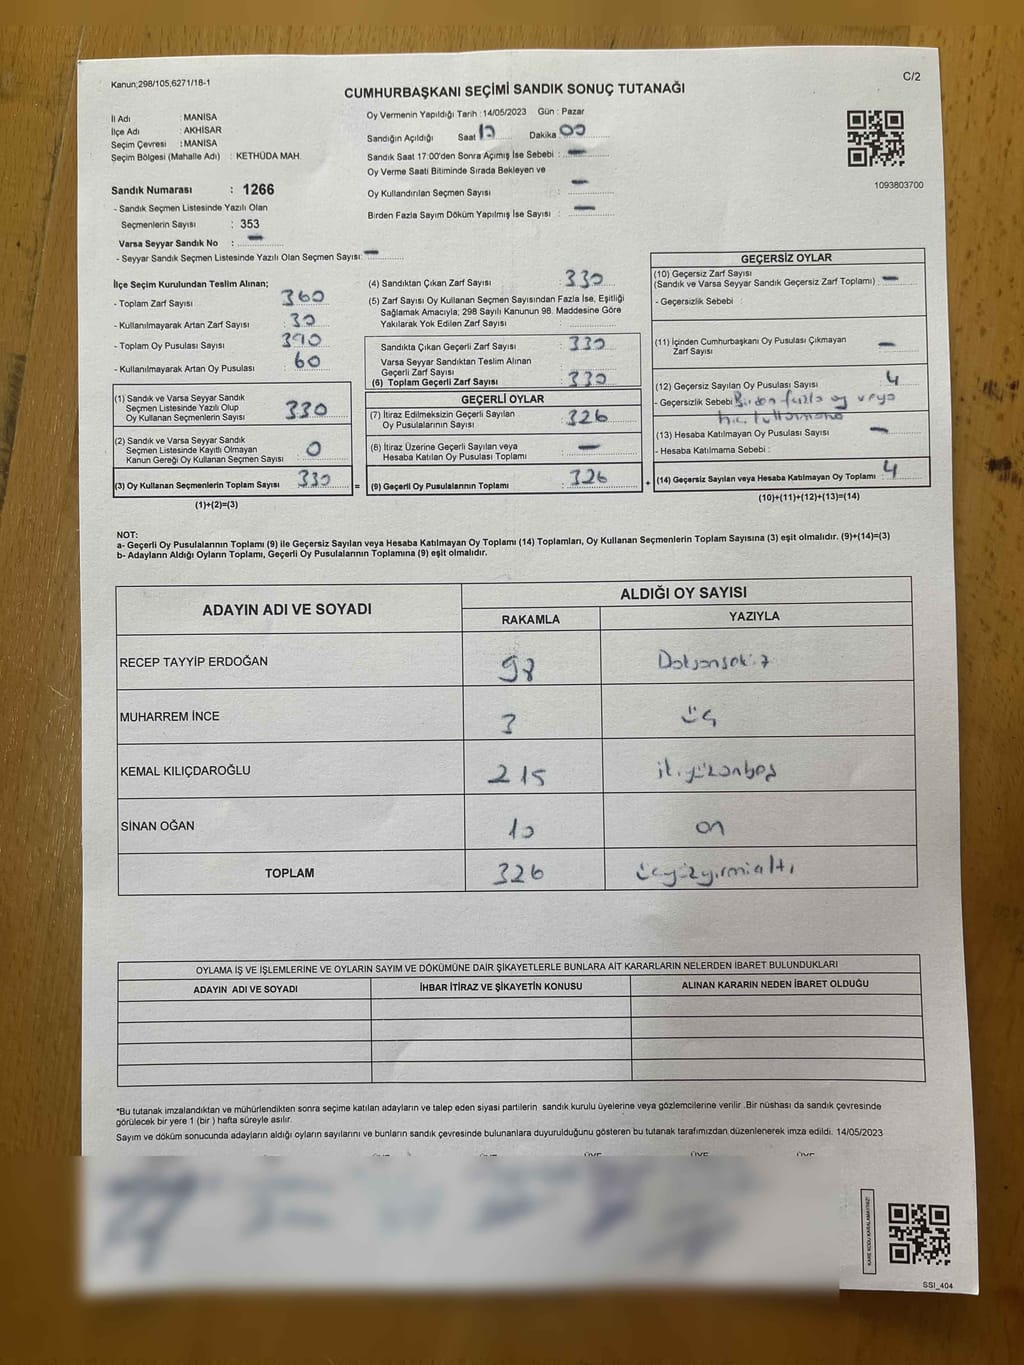 Kanun;298/105,6271/18-1
C/2
CUMHURBAŞKANI SEÇİMİ SANDIK SONUÇ TUTANAĞI
İl Adı : MANİSA
İlçe Adı : AKHİSAR
Seçim Çevresi : MANİSA
Seçim Bölgesi (Mahalle Adı) : KETHÜDA MAH.
Oy Vermenin Yapıldığı Tarih :14/05/2023 Gün : Pazar
Sandığın Açıldığı Saat Dakika 00
Sandık Saat 17:00'den Sonra Açımış İse Sebebi : —
Oy Verme Saati Bitiminde Sırada Bekleyen ve
Oy Kullandırılan Seçmen Sayısı : —
Birden Fazla Sayım Döküm Yapılmış İse Sayısı : —
1093803700
Sandık Numarası : 1266
- Sandık Seçmen Listesinde Yazılı Olan
Seçmenlerin Sayısı : 353
Varsa Seyyar Sandık No : —
- Seyyar Sandık Seçmen Listesinde Yazılı Olan Seçmen Sayısı: —
İlçe Seçim Kurulundan Teslim Alınan;
- Toplam Zarf Sayısı : 360
- Kullanılmayarak Artan Zarf Sayısı : 30
- Toplam Oy Pusulası Sayısı : 390
- Kullanılmayarak Artan Oy Pusulası : 60
(1) Sandık ve Varsa Seyyar Sandık
Seçmen Listesinde Yazılı Olup
Oy Kullanan Seçmenlerin Sayısı : 330
(2) Sandık ve Varsa Seyyar Sandık
Seçmen Listesinde Kayıtlı Olmayan
Kanun Gereği Oy Kullanan Seçmen Sayısı : 0
(3) Oy Kullanan Seçmenlerin Toplam Sayısı : 330 =
(1)+(2)=(3)
(4) Sandıktan Çıkan Zarf Sayısı : 330
(5) Zarf Sayısı Oy Kullanan Seçmen Sayısından Fazla İse, Eşitliği
Sağlamak Amacıyla; 298 Sayılı Kanunun 98. Maddesine Göre
Yakılarak Yok Edilen Zarf Sayısı :
Sandıkta Çıkan Geçerli Zarf Sayısı : 330
Varsa Seyyar Sandıktan Teslim Alınan
Geçerli Zarf Sayısı :
(6) Toplam Geçerli Zarf Sayısı : 330
GEÇERLİ OYLAR
(7) İtiraz Edilmeksizin Geçerli Sayılan
Oy Pusulalarının Sayısı : 326
(8) İtiraz Üzerine Geçerli Sayılan veya
Hesaba Katılan Oy Pusulası Toplamı : —
(9) Geçerli Oy Pusulalarının Toplamı : 326 +
GEÇERSİZ OYLAR
(10) Geçersiz Zarf Sayısı
(Sandık ve Varsa Seyyar Sandık Geçersiz Zarf Toplamı) : —
- Geçersizlik Sebebi
(11) İçinden Cumhurbaşkanı Oy Pusulası Çıkmayan
Zarf Sayısı : —
(12) Geçersiz Sayılan Oy Pusulası Sayısı : 4
- Geçersizlik Sebebi Birden fazla oy veya
hiç
(13) Hesaba Katılmayan Oy Pusulası Sayısı : —
- Hesaba Katılmama Sebebi :
(14) Geçersiz Sayılan veya Hesaba Katılmayan Oy Toplamı : 4
(10)+(11)+(12)+(13)=(14)
NOT:
a- Geçerli Oy Pusulalarının Toplamı (9) ile Geçersiz Sayılan veya Hesaba Katılmayan Oy Toplamı (14) Toplamları, Oy Kullanan Seçmenlerin Toplam Sayısına (3) eşit olmalıdır. (9)+(14)=(3)
b- Adayların Aldığı Oyların Toplamı, Geçerli Oy Pusulalarının Toplamına (9) eşit olmalıdır.
ADAYIN ADI VE SOYADI
ALDIĞI OY SAYISI
RAKAMLA YAZIYLA
RECEP TAYYİP ERDOĞAN 98 Doksansekiz
MUHARREM İNCE 3 üç
KEMAL KILIÇDAROĞLU 215 ikiyüzonbeş
SİNAN OĞAN 10 on
TOPLAM 326 üçyüzyirmialtı
OYLAMA İŞ VE İŞLEMLERİNE VE OYLARIN SAYIM VE DÖKÜMÜNE DAİR ŞİKAYETLERLE BUNLARA AİT KARARLARIN NELERDEN İBARET BULUNDUKLARI
ADAYIN ADI VE SOYADI İHBAR İTİRAZ VE ŞİKAYETİN KONUSU ALINAN KARARIN NEDEN İBARET OLDUĞU
*Bu tutanak imzalandıktan ve mühürlendikten sonra seçime katılan adayların ve talep eden siyasi partilerin sandık kurulu üyelerine veya gözlemcilerine verilir .Bir nüshası da sandık çevresinde
görülecek bir yere 1 (bir ) hafta süreyle asılır.
Sayım ve döküm sonucunda adayların aldığı oyların sayılarını ve bunların sandık çevresinde bulunanlara duyurulduğunu gösteren bu tutanak tarafımızdan düzenlenerek imza edildi. 14/05/2023
ÜYE ÜYE ÜYE
KARE KODU KARALAMAYINIZ!
SSI_404